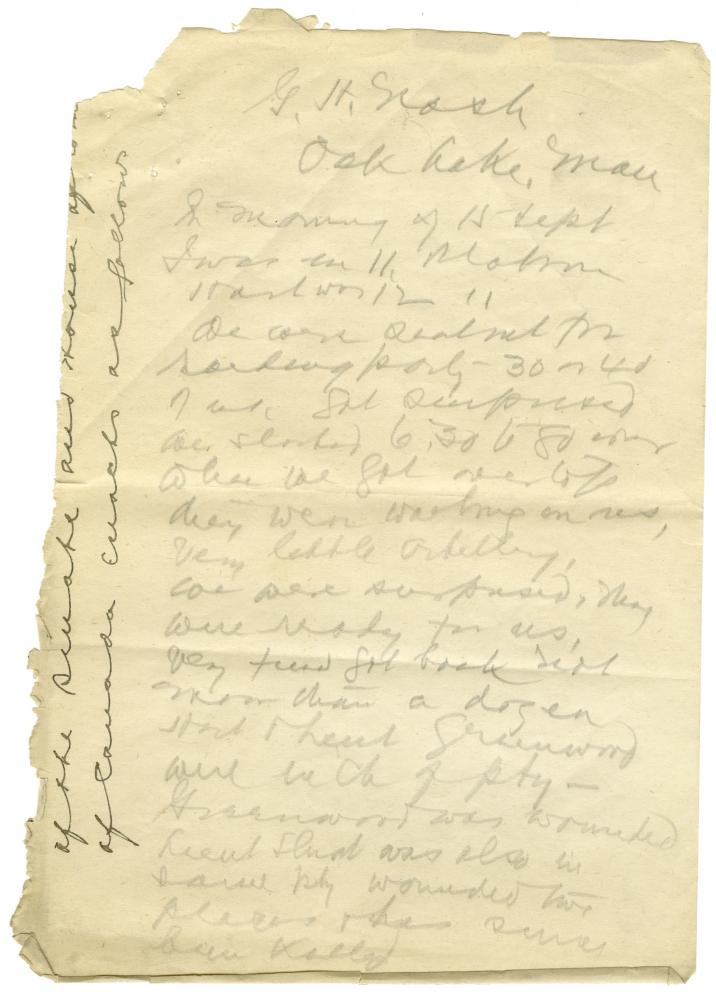 G. H. Nash
Oak Lake, Man
In morning of 15 Sept
I was in 11. Platoon
11
We were for
party - 30 or 40
of us. Got surprised
we started 6.30 to
when we got over top
they were waiting on us,
Very little artillery,
we were surprised, they
were ready for us,
Very few got back not
more than a dozen
& Lieut Greenwood
were in ch of pty -
Greenwood was wounded
Lieut was also in
same pty wounded two
places & has since
been killed
of the Senate and House of
of Canada enacts as follows